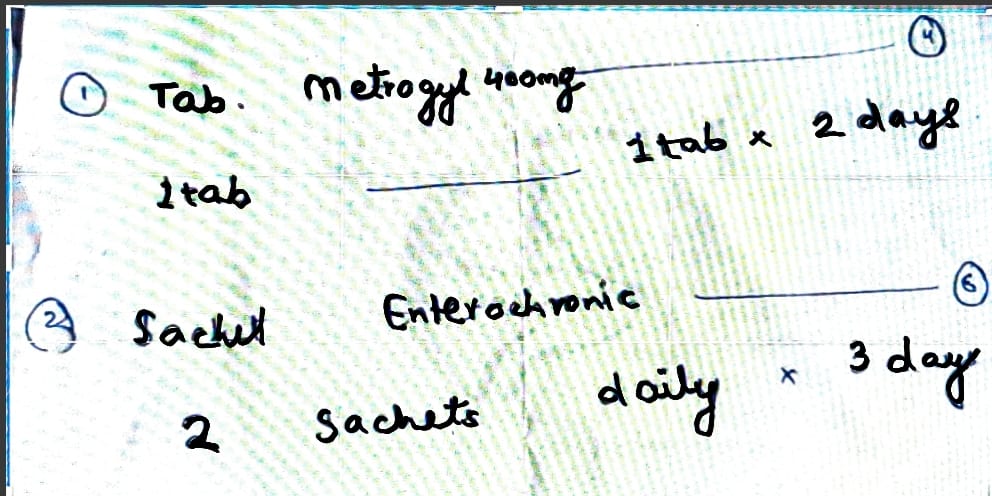 ① Tab. Metrogyl 400mg ——— ④
1 tab ——— 1 tab x 2 days
② Sachet Enterochronic ——— ⑥
2 sachets daily x 3 days